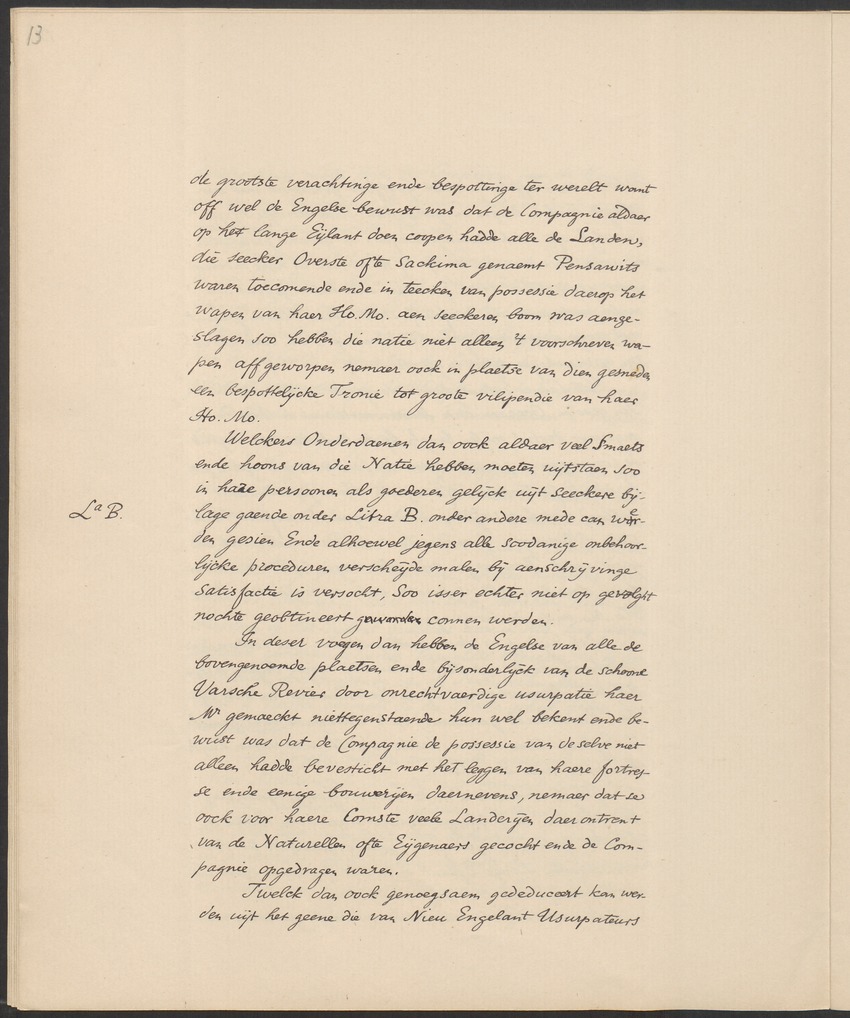 13
de grootste verachtinge ende bespottinge ter werelt want
off wel de Engelse bewust was dat de Compagnie aldaer
op het lange Eijlant doen coopen hadde alle de Landen,
die seecker Overste ofte Sackima genaemt Pensawits
waren toecomende ende in teecken van possessie daerop het
wapen van haer Ho. Mo. aen seeckeren boom was aenge-
slagen soo hebben die natie niet alleen 't voorschreven wa-
pen affgeworpen nemaer oock in plaetse van dien gesneden
een bespottelijcke Tronie tot groote vilipendie van haer
Ho. Mo.
Welckers Onderdaenen dan oock aldaer veel Smaets
ende hoons van die Natie hebben moeten uijtstaen soo
in hare persoonen als goederen gelijck uijt seeckere bij-
La B.
lage gaende onder Litra B. onder andere mede can wer-
den gesien Ende alhoewel jegens alle soodanige onbehoor-
lijcke proceduren verscheijde malen bij aenschrijvinge
satisfactie is versocht, soo isser echter niet op gevolght
nochte geobtineert connen werden.
In deser voegen dan hebben de Engelse van alle de
bovengenoemde plaetsen ende bijsonderlijck van de schoone
Varsche Revier door onrechtvaerdige usurpatie haer
Mr gemaeckt niettegenstaende hun wel bekent ende be-
wust was dat de Compagnie de possessie van deselve niet
alleen hadde bevesticht met het leggen van haere fortres-
se ende eenige bouwerijen daernevens, nemaer dat se
oock voor haere Comste veele Landerijen daerontrent
van de Naturellen ofte Eijgenaers gecocht ende de Com-
pagnie opgedragen waren.
Twelck dan oock genoegsaem gededuceert kan wer-
den uijt het geene die van Nieu Engelant Usurpateurs